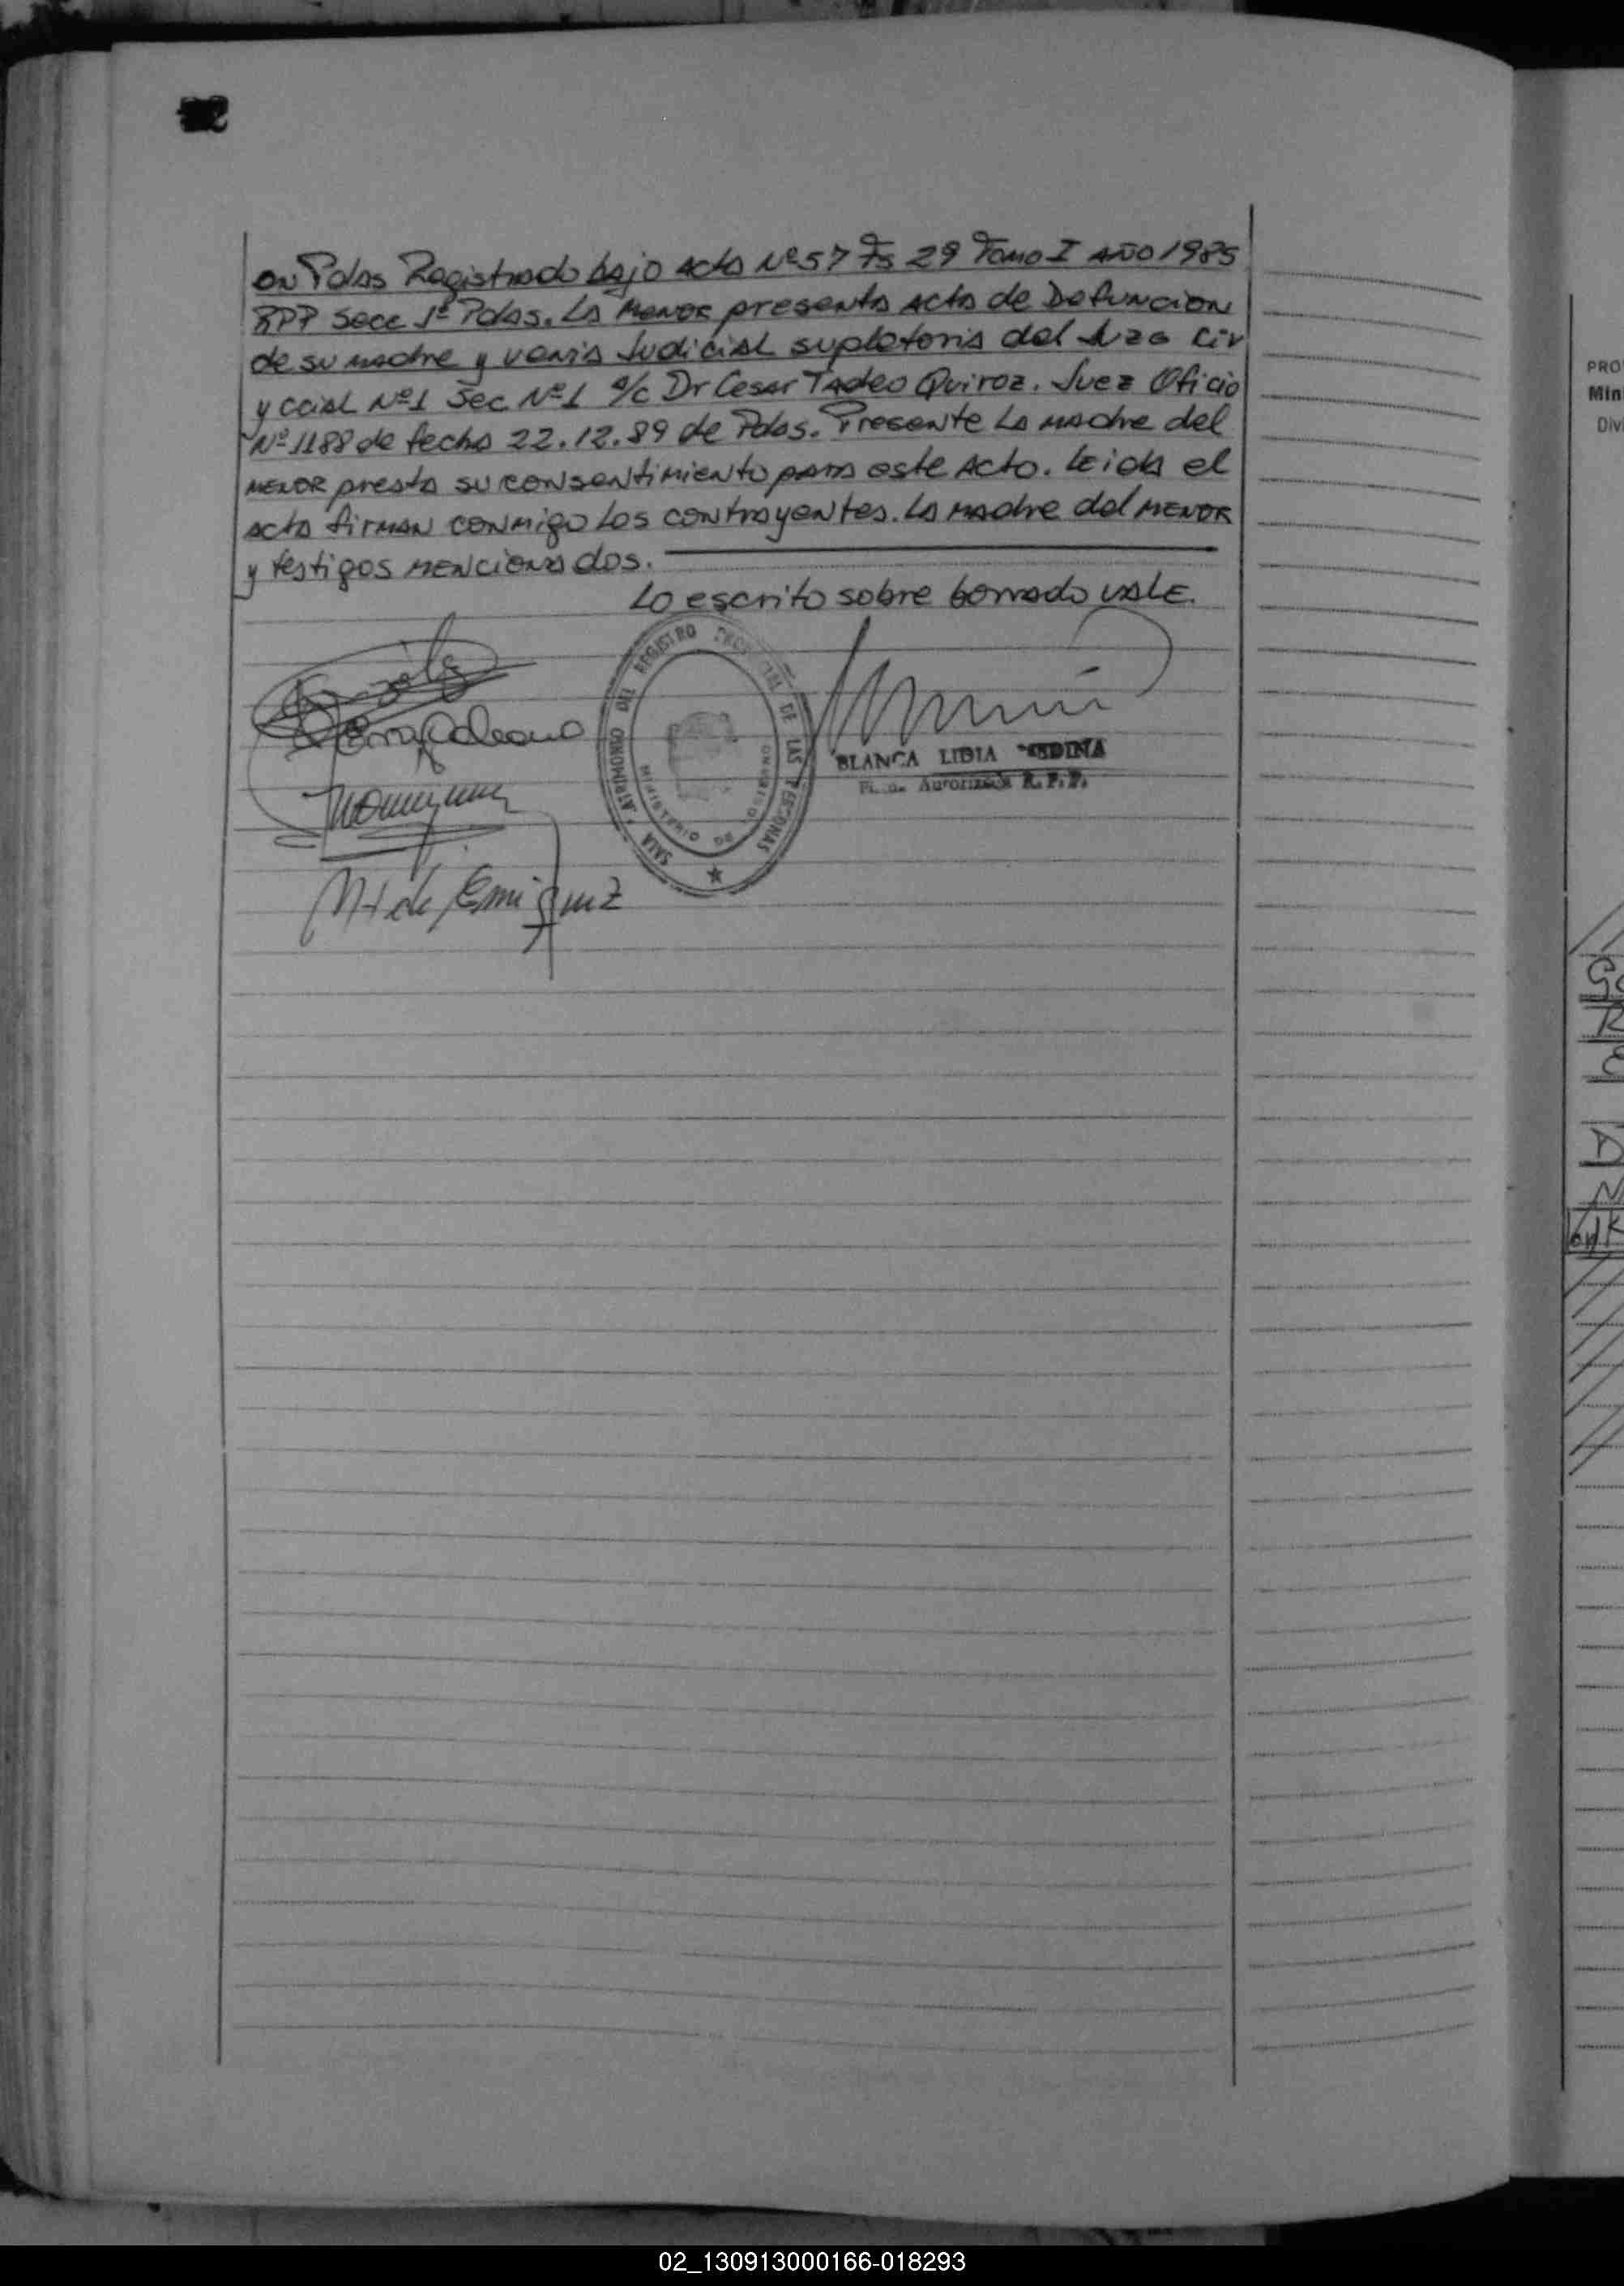 en Pdas Registrado bajo Acta Nº 57 Fs 29 Tomo I Año 1985
RPP Secc 1ª Pdas. La Menor presenta Acta de Defuncion
de su madre y venia Judicial supletoria del Juzg Civ
y ccial Nº1 Sec Nº1 a/c Dr Cesar Tadeo Quiroz. Juez Oficio
Nº 1188 de fecha 22.12.89 de Pdas. Presente La madre del
MENOR presta su consentimiento para este Acto. Leida el
acta firman conmigo Los contrayentes. La Madre del MENOR
y testigos MENcionados.
Lo escrito sobre borrado VALE.
REGISTRO DE LAS PERSONAS
MINISTERIO DE GOBIERNO
BLANCA LIDIA MEDINA
Autorizada R.P.P.
M H de Eniquez
PRO
Min
Divi
02_130913000166-018293